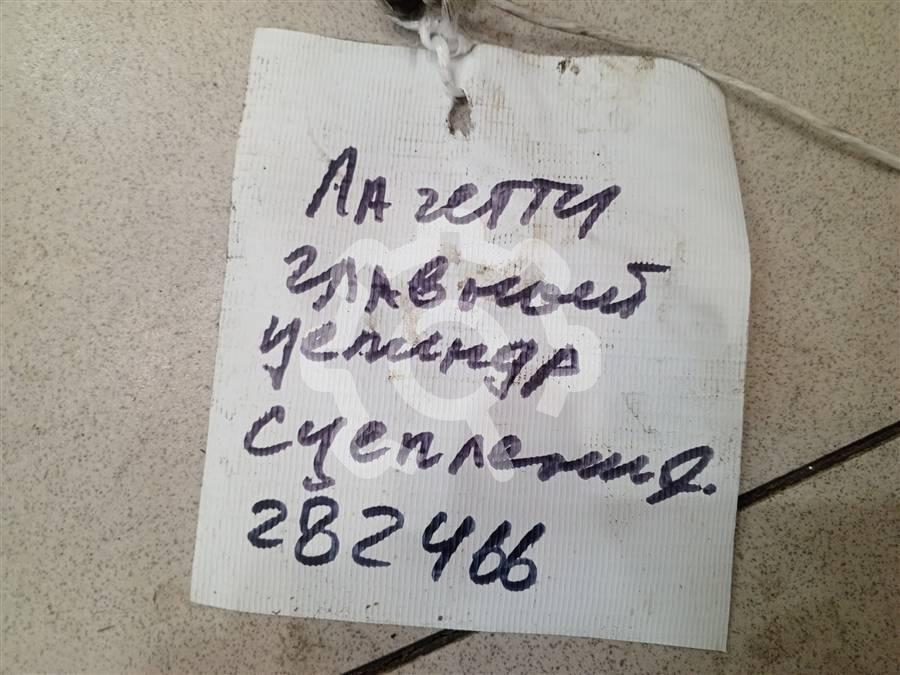 Лачетти
главной
цилиндр
сцепления.
282466